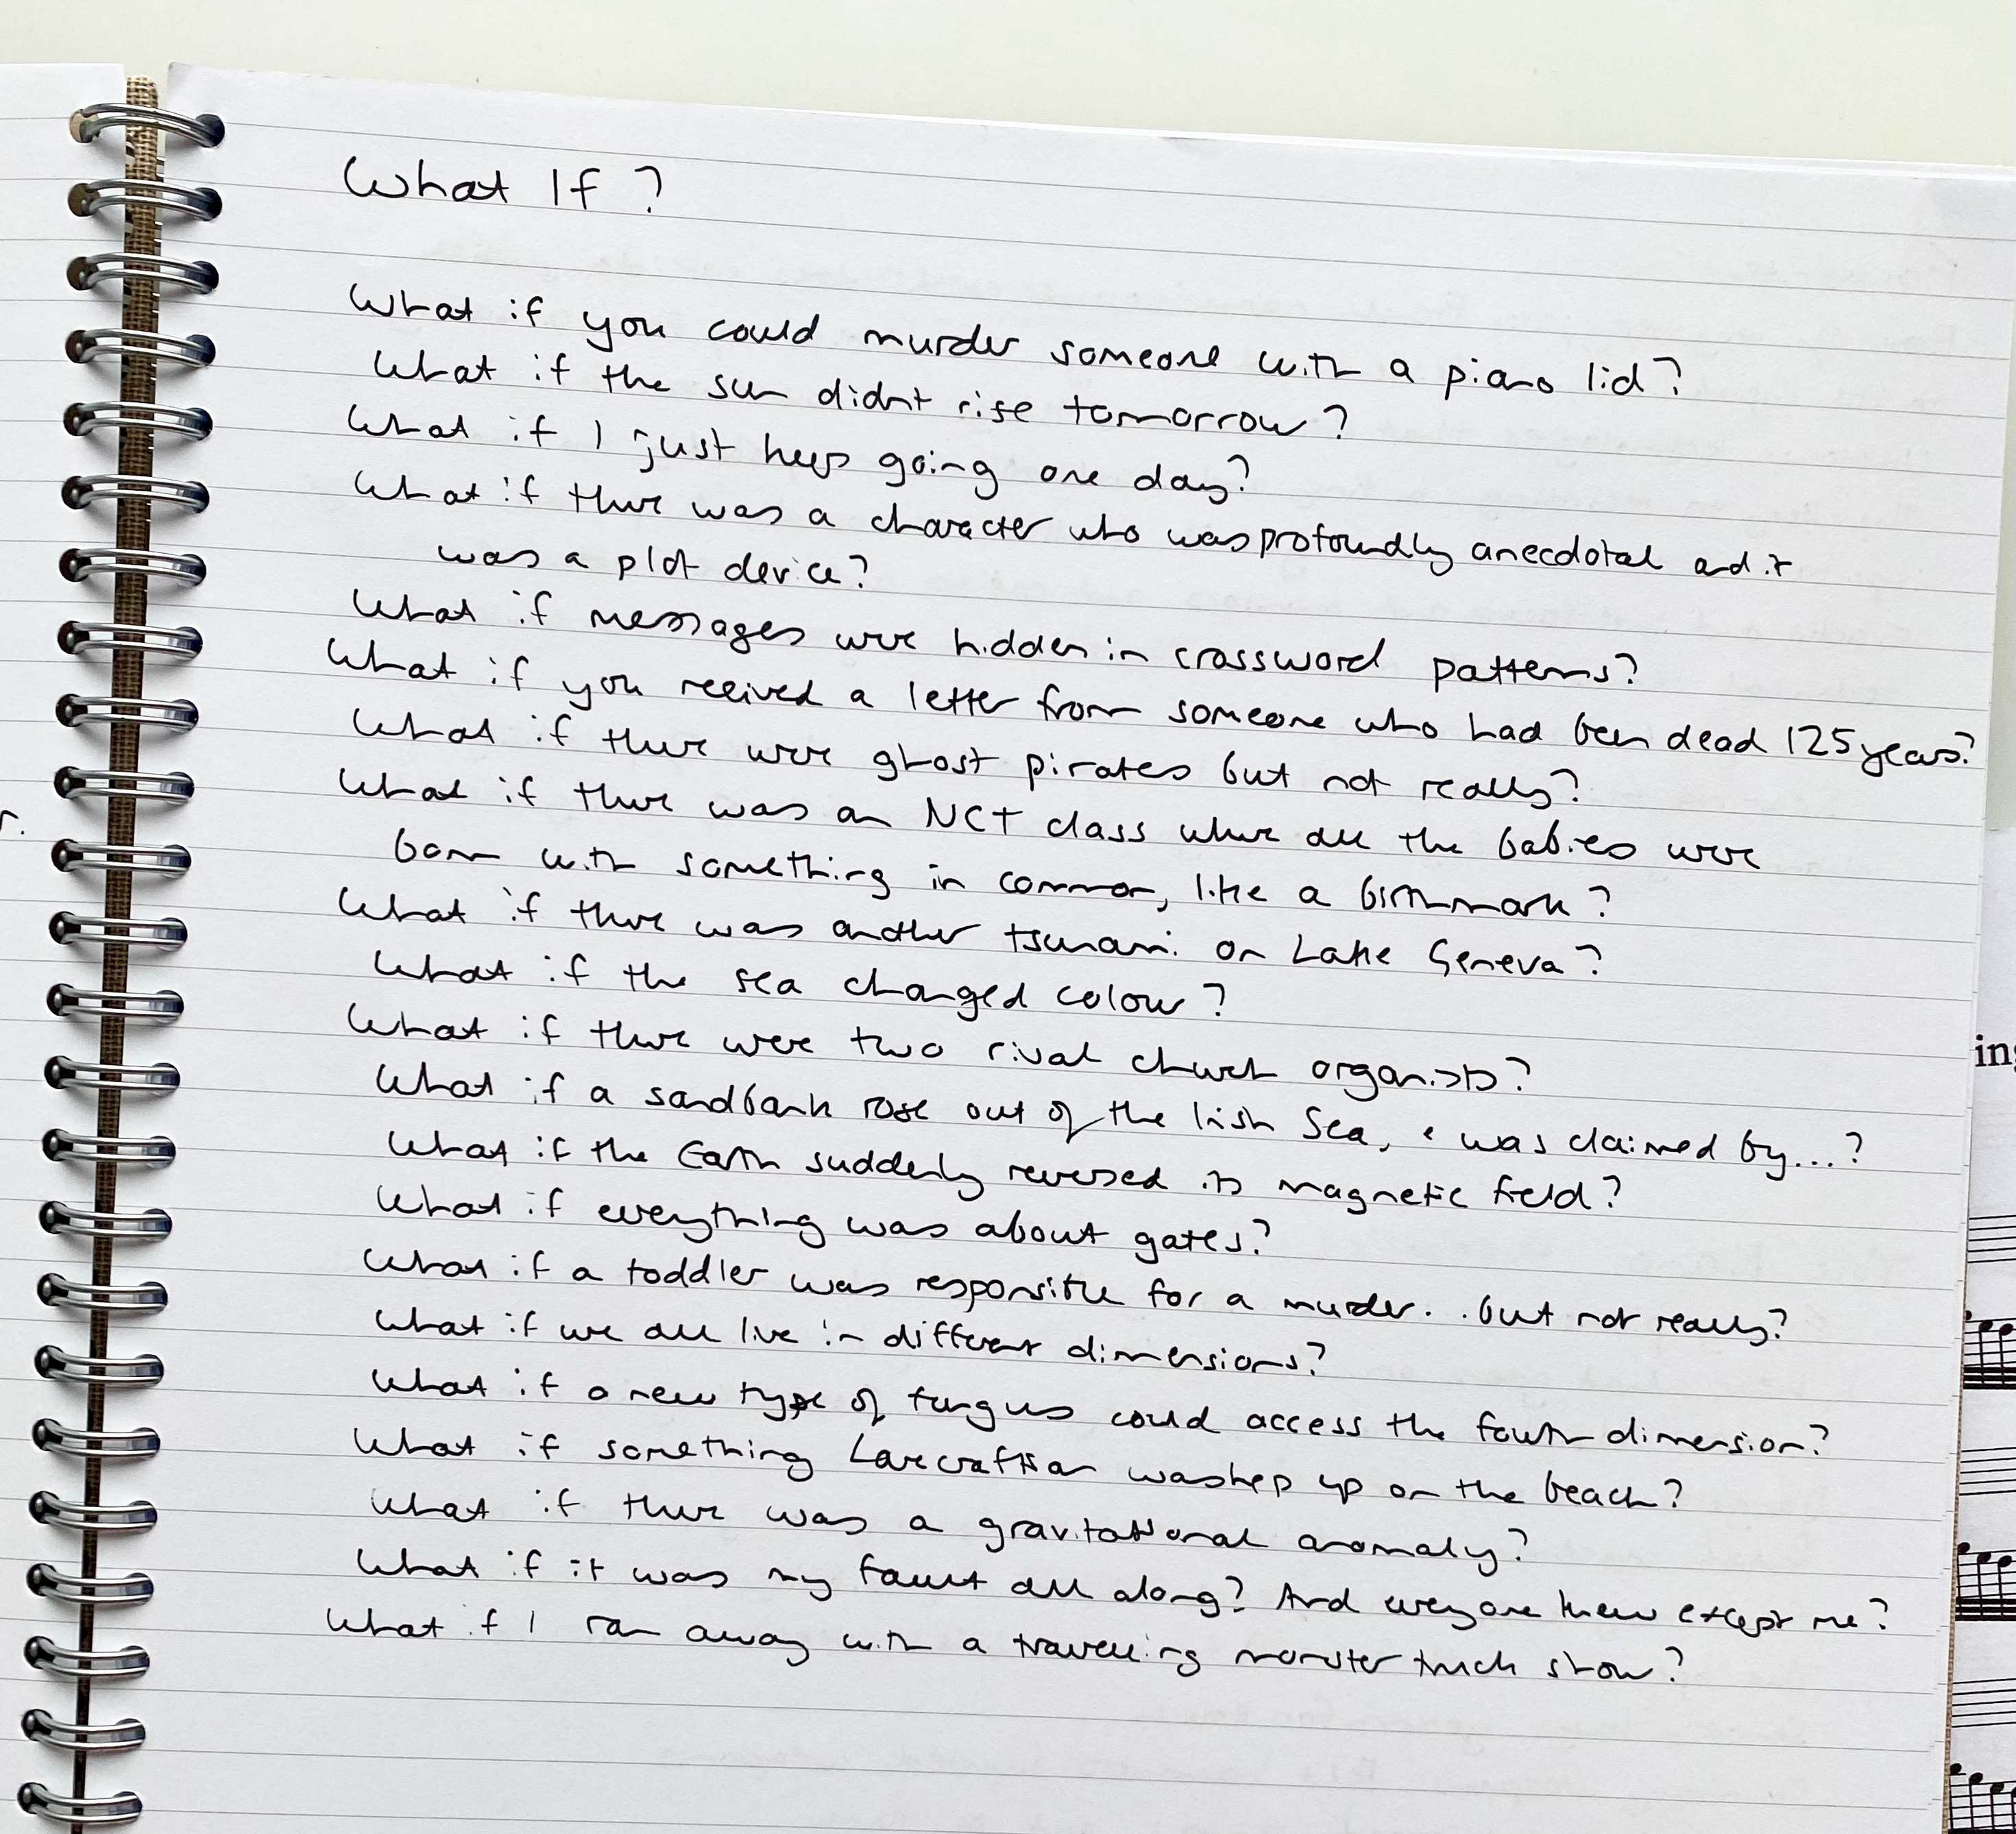 What If ?
What if you could murder someone with a piano lid?
What if the sun didn't rise tomorrow?
What if I just keep going one day?
What if there was a character who was profoundly anecdotal and it
was a plot device?
What if messages were hidden in crossword patterns?
What if you received a letter from someone who had been dead 125 years?
What if there were ghost pirates but not really?
What if there was an NCT class where all the babies were
born with something in common, like a birthmark?
What if there was another tsunami on Lake Geneva?
What if the sea changed colour?
What if there were two rival church organists?
What if a sandbank rose out of the Irish Sea, & was claimed by...?
What if the Earth suddenly reversed its magnetic field?
What if everything was about gates?
What if a toddler was responsible for a murder... but not really?
What if we all live in different dimensions?
What if a new type of fungus could access the fourth dimension?
What if something Lovecraftian washed up on the beach?
What if there was a gravitational anomaly?
What if it was my fault all along? And everyone knew except me?
What if I ran away with a travelling monster truck show?
r.
ing